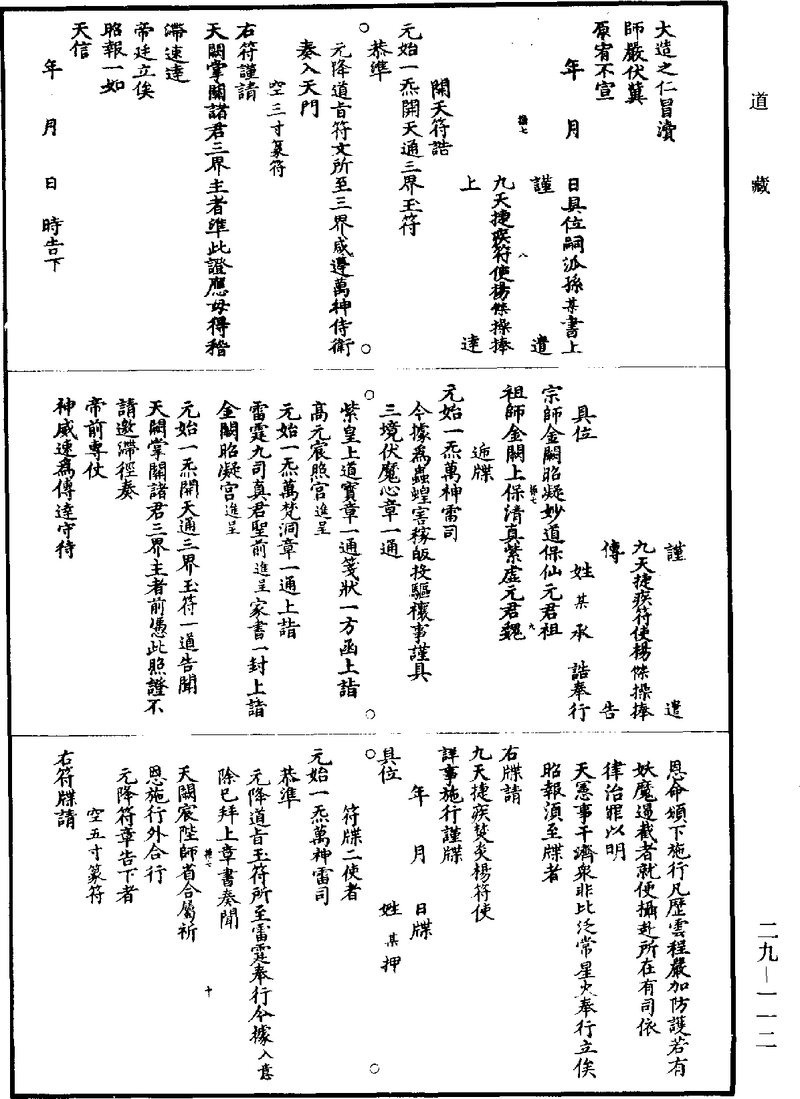 道藏
大造之仁冒瀆
師嚴伏冀
原宥不宣
年　月　日具位嗣派孫某書上
謹遣
九天捷疾符使楊傑操捧
上達
開天符誥
元始一炁開天通三界玉符
恭準
元降道旨符文所至三界咸遵萬神侍衛
奏入天門
空三寸篆符
右符謹請
天闕掌關諸君三界主者準此證應毋得稽
滯速達
帝廷立俟
昭報一如
天信
年　月　日　時告下
具位
謹遣
九天捷疾符使楊傑操捧
傳告
姓某承誥奉行
宗師金闕昭凝妙道保仙元君祖
祖師金闕上保清真紫虛元君魏
遞牒
元始一炁萬神雷司
今據為蟲蝗害稼皈投驅禳事謹具
三境伏魔心章一通
紫皇上道寶章一通箋狀一方函上詣
高元宸照宮進呈
元始一炁萬梵洞章一通上詣
雷霆九司真君聖前進呈家書一封上詣
金闕昭凝宮進呈
元始一炁開天通三界玉符一道告聞
天闕掌關諸君三界主者前憑此照證不
請邀滯徑奏
帝前專仗
神威速為傳達守待
恩命頒下施行凡歷雲程嚴加防護若有
妖魔遏截者就便攝赴所在有司依
律治罪以明
天憲事干濟眾非比泛常星火奉行立俟
昭報須至牒者
右牒請
九天捷疾焚炎楊符使
詳事施行謹牒
年　月　日牒
具位　姓某押
符牒二使者
元始一炁萬神雷司
恭準
元降道旨玉符所至雷霆奉行今據入意
除已拜上章書奏聞
天闕宸陛師省合屬祈
恩施行外合行
元降符章告下者
空五寸篆符
右符牒請
二九—一一二